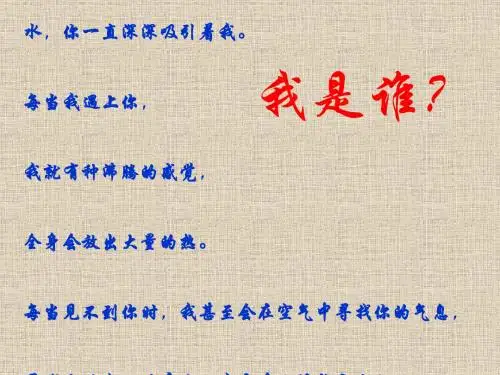 水，你一直深深吸引着我。
我是谁？
每当我遇上你，
我就有种沸腾的感觉，
全身会放出大量的热。
每当见不到你时，我甚至会在空气中寻找你的气息，